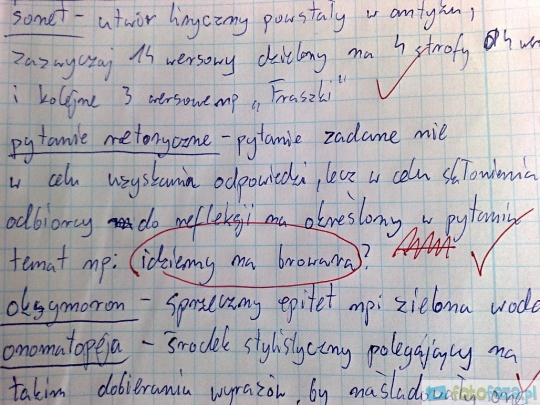 sonet - utwór liryczny powstały w antyku,
zazwyczaj 14 wersowy dzielony na 4 strofy 4 we
i kolejne 3 wersowe np „Fraszki"
pytanie retoryczne - pytanie zadane nie
w celu uzyskania odpowiedzi, lecz w celu skłonienia
odbiorcy do refleksji na określony w pytaniu
temat np: idziemy na browara?
oksymoron - sprzeczny epitet np: zielona woda
onomatopeja - środek stylistyczny polegający na
takim dobieraniu wyrazów, by naśladowały one
fotofoza.pl